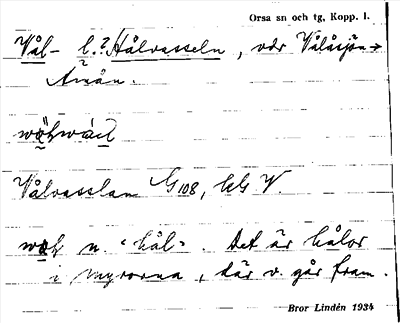 Orsa sn och tg, Kopp. l.
Vål- l.? Hålvasseln, vdr Vålåsjön →
Ämån.
Vålvasslan G108, bG V.
n. "hål". Det är hålor
i myrorna, där v. går fram.
Bror Lindén 1934